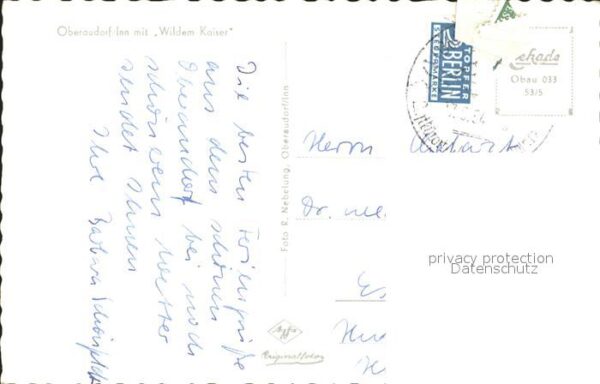 Oberaudorf/Inn mit „Wildem Kaiser"
Die besten Feriengrüße
aus dem schönen
Oberaudorf bei noch
schönerem Wetter
sendet Ihnen
Ihre Barbara
Foto R. Nebelung, Oberaudorf/Inn
Agfa
Originalfoto
2 NOTOPFER
BERLIN
STEUERMARKE
schada
Obau 033
53/5
Herrn
Dr. med.
privacy protection
Datenschutz